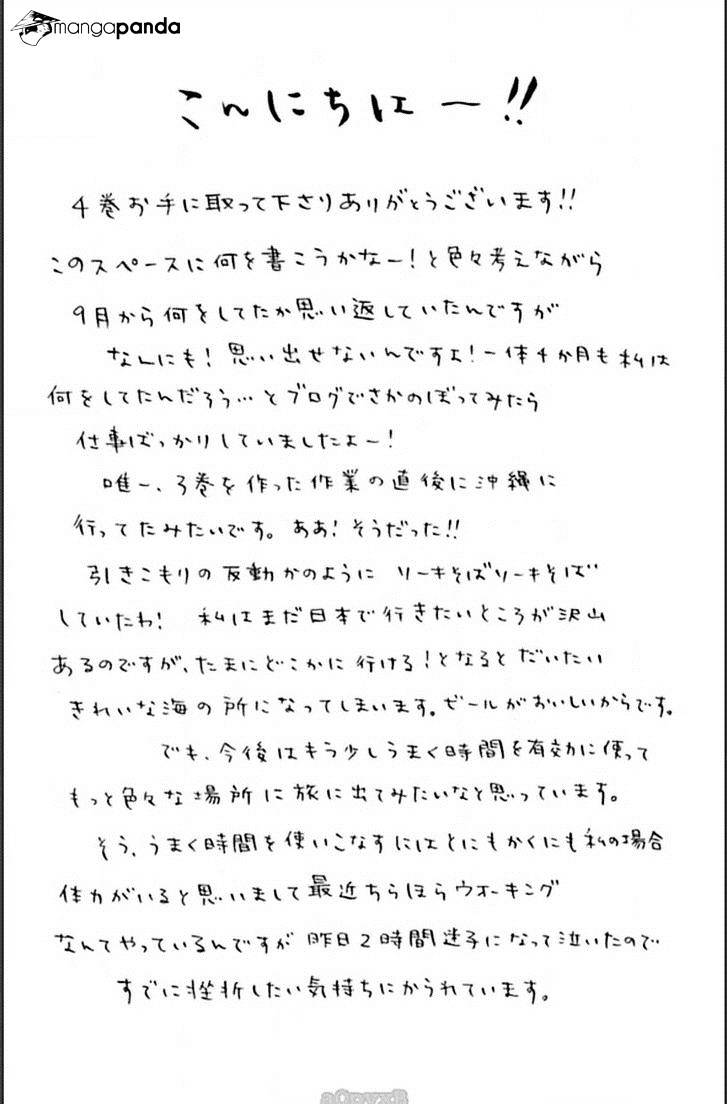 mangapanda
こんにちはー!!
4巻お手に取って下さりありがとうございます!!
このスペースに何を書こうかなー!と色々考えながら
9月から何をしてたか思い返していたんですが
なんにも!思い出せないんですよ!一体4か月も私は
何をしてたんだろう…とブログでさかのぼってみたら
仕事ばっかりしていましたよー!
唯一、3巻を作った作業の直後に沖縄に
行ってたみたいです。ああ!そうだった!!
引きこもりの反動かのように ソーキそばソーキそば
していたわ! 私はまだ日本で行きたいところが沢山
あるのですが、たまにどこかに行ける!となるとだいたい
きれいな海の所になってしまいます。ビールがおいしいからです。
でも、今後はもう少しうまく時間を有効に使って
もっと色々な場所に旅に出てみたいなと思っています。
そう、うまく時間を使いこなすにはとにもかくにも私の場合
体力がいると思いまして最近ちらほらウオーキング
なんてやっているんですが昨日2時間迷子になって泣いたので
すでに挫折したい気持ちにかられています。